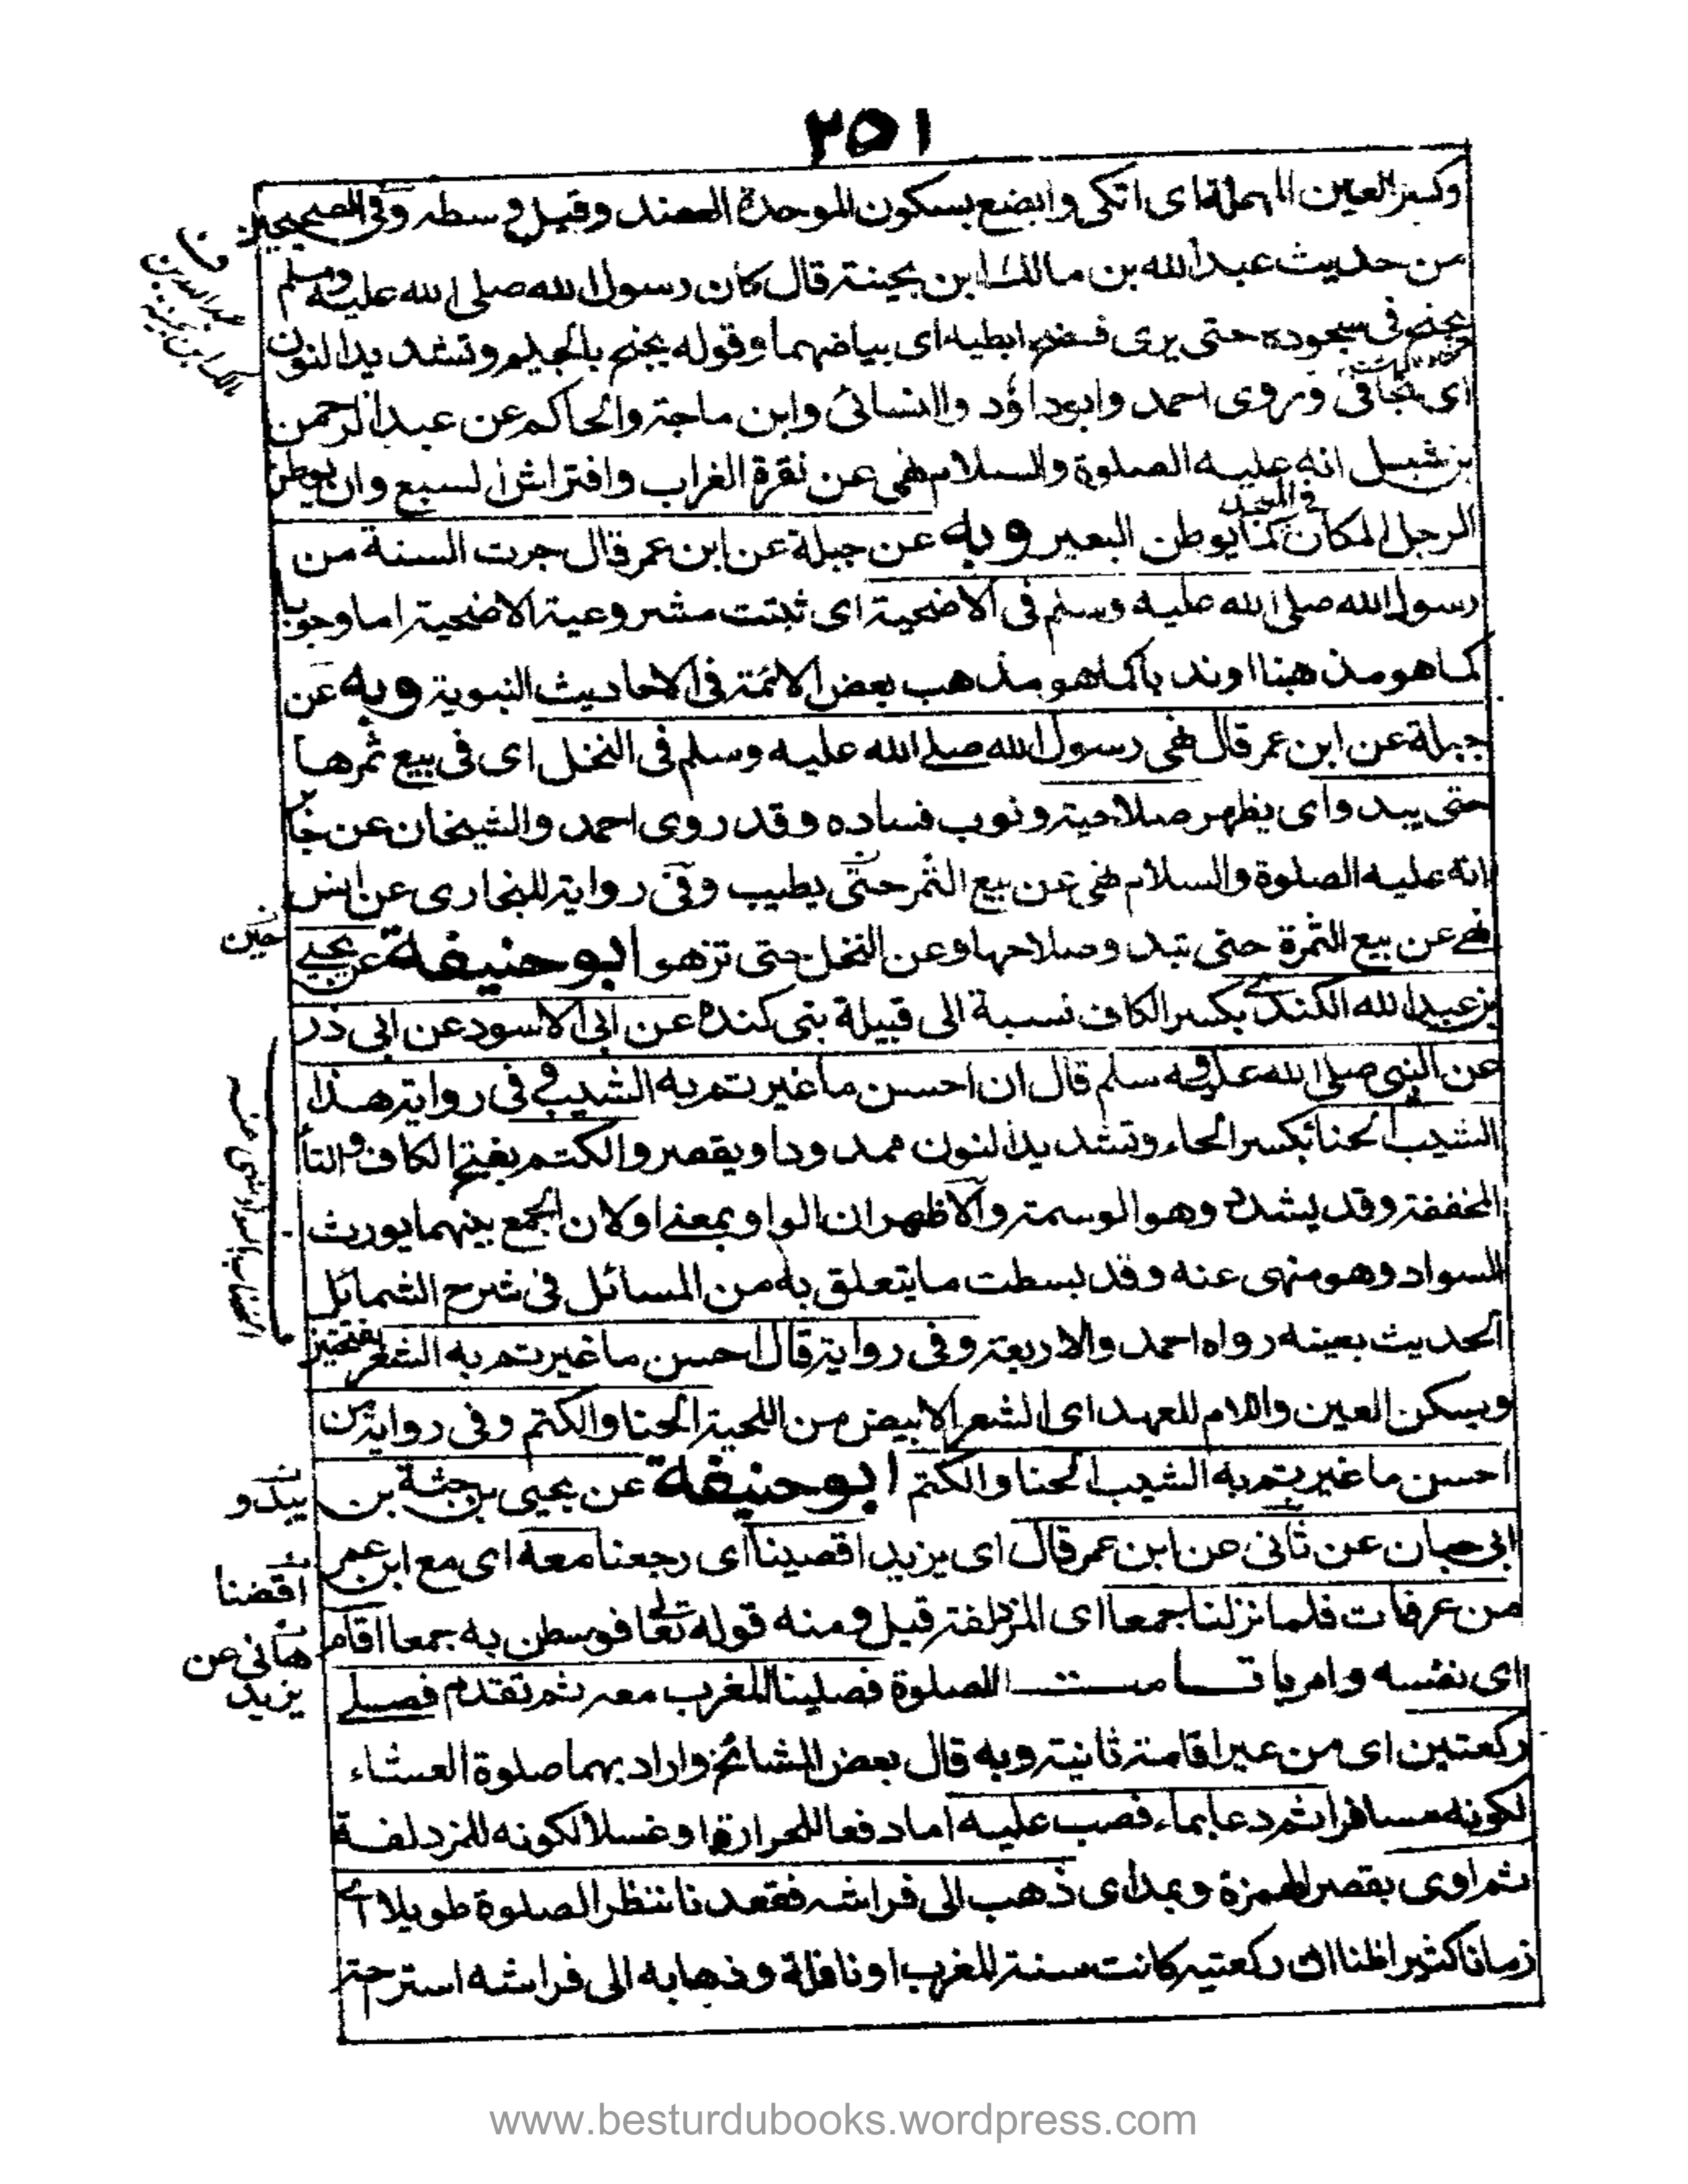 ٢٥١
وكسر العين المهملة اى اتكى وابضع بسكون الموحدة العضد وقيل وسطه وفى الصحيحين
من حديث عبد الله بن مالك ابن بحينة قال كان رسول الله صلى الله عليه وسلم
يجنح فى سجوده حتى يرى وضح ابطيه اى بياضهما وقوله يجنح بالجيم وتشديد النون
اى يجافى وروى احمد وابوداؤد والنسائى وابن ماجة والحاكم عن عبد الرحمن
بن شبل انه عليه الصلوة والسلام نهى عن نقرة الغراب وافتراش السبع وان يوطن
الرجل المكان فى المسجد كما يوطن البعير وبه عن جبلة عن ابن عمر قال جرت السنة من
رسول الله صلى الله عليه وسلم فى الاضحية اى ثبتت مشروعية الاضحية اما وجوبا
كما هو مذهبنا او ندبا كما هو مذهب بعض الائمة فى الاحاديث النبوية وبه عن
جبلة عن ابن عمر قال نهى رسول الله صلى الله عليه وسلم فى النخل اى فى بيع ثمرها
حتى يبدو اى يظهر صلاحية ونوب فساده وقد روى احمد والشيخان عن جا
انه عليه الصلوة والسلام نهى عن بيع الثمر حتى يطيب وفى رواية للبخارى عن انس
نهى عن بيع الثمرة حتى تبدو صلاحها وعن النخل حتى تزهو ابو حنيفة عن يحيى
بن عبد الله الكندى بكسر الكاف نسبة الى قبيلة بنى كندة عن ابى الاسود عن ابى ذر
عن النبى صلى الله عليه وسلم قال ان احسن ما غيرتم به الشيب وفى رواية هذا
الشيب الحنا بكسر الحاء وتشديد النون ممدودا ويقصر والكتم بفتح الكاف والتا
المخففة وقد يشدد وهو الوسمة والاظهر ان الواو بمعنى او لان الجمع بينهما يورث
السواد وهو منهى عنه وقد بسطت ما يتعلق به من المسائل فى شرح الشمائل
الحديث بعينه رواه احمد والاربعة وفى رواية قال احسن ما غيرتم به الشعر بفتحتين
ويسكن العين واللام للعهد اى الشعر الابيض من اللحية الحنا والكتم وفى رواية من
احسن ما غيرتم به الشيب الحنا والكتم ابو حنيفة عن يحيى بن حثة بن
ابى حبان عن ثانى عن ابن عمر قال اى يزيد اقصينا اى رجعنا معه اى مع ابن عمر
من عرفات فلما نزلنا جمعا اى المزدلفة قيل ومنه قوله تعالى فوسطن به جمعا اقام
اى نفسه وامر با الصلوة فصلينا المغرب معه ثم تقدم فصلى
ركعتين اى من غير اقامة ثانية وبه قال بعض المشائخ واراد بهما صلوة العشاء
لكونه مسافرا ثم دعا بماء فصب عليه اما دفعا للحرارة او غسلا لكونه للمزدلفة
ثم اوى بقصر الهمزة وبمد اى ذهب الى فراشه فقعدنا ننتظر الصلوة طويلا اى
زمانا كثيرا ظنا ان ركعتيه كانت سنة المغرب او نافلة وذهابه الى فراشه استرحة
حين
يبدو
اقضنا
هانى عن
يزيد
www.besturdubooks.wordpress.com